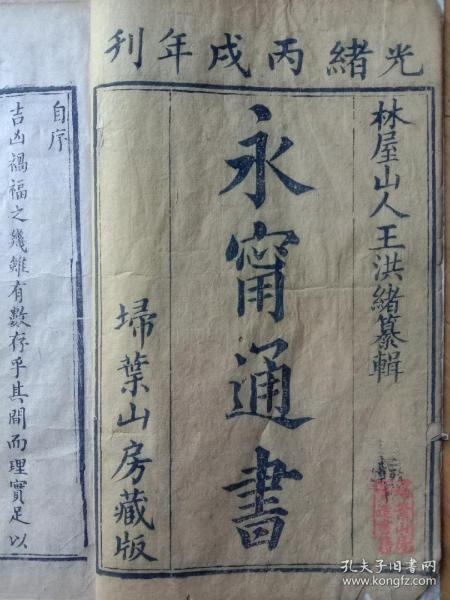 光緒丙戌年刊
林屋山人王洪緒纂輯
永甯通書
埽葉山房藏版
自序
吉凶禍福之幾雖有數存乎其間而理實足以
孔夫子旧书网